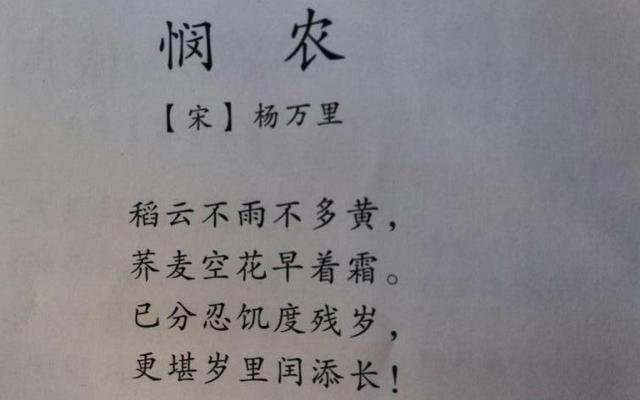 悯 农
【宋】杨万里
稻云不雨不多黄，
荞麦空花早着霜。
已分忍饥度残岁，
更堪岁里闰添长！